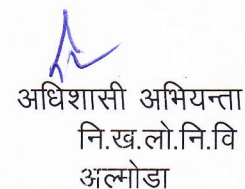 अधिशासी अभियन्ता
नि.ख.लो.नि.वि
अल्मोडा